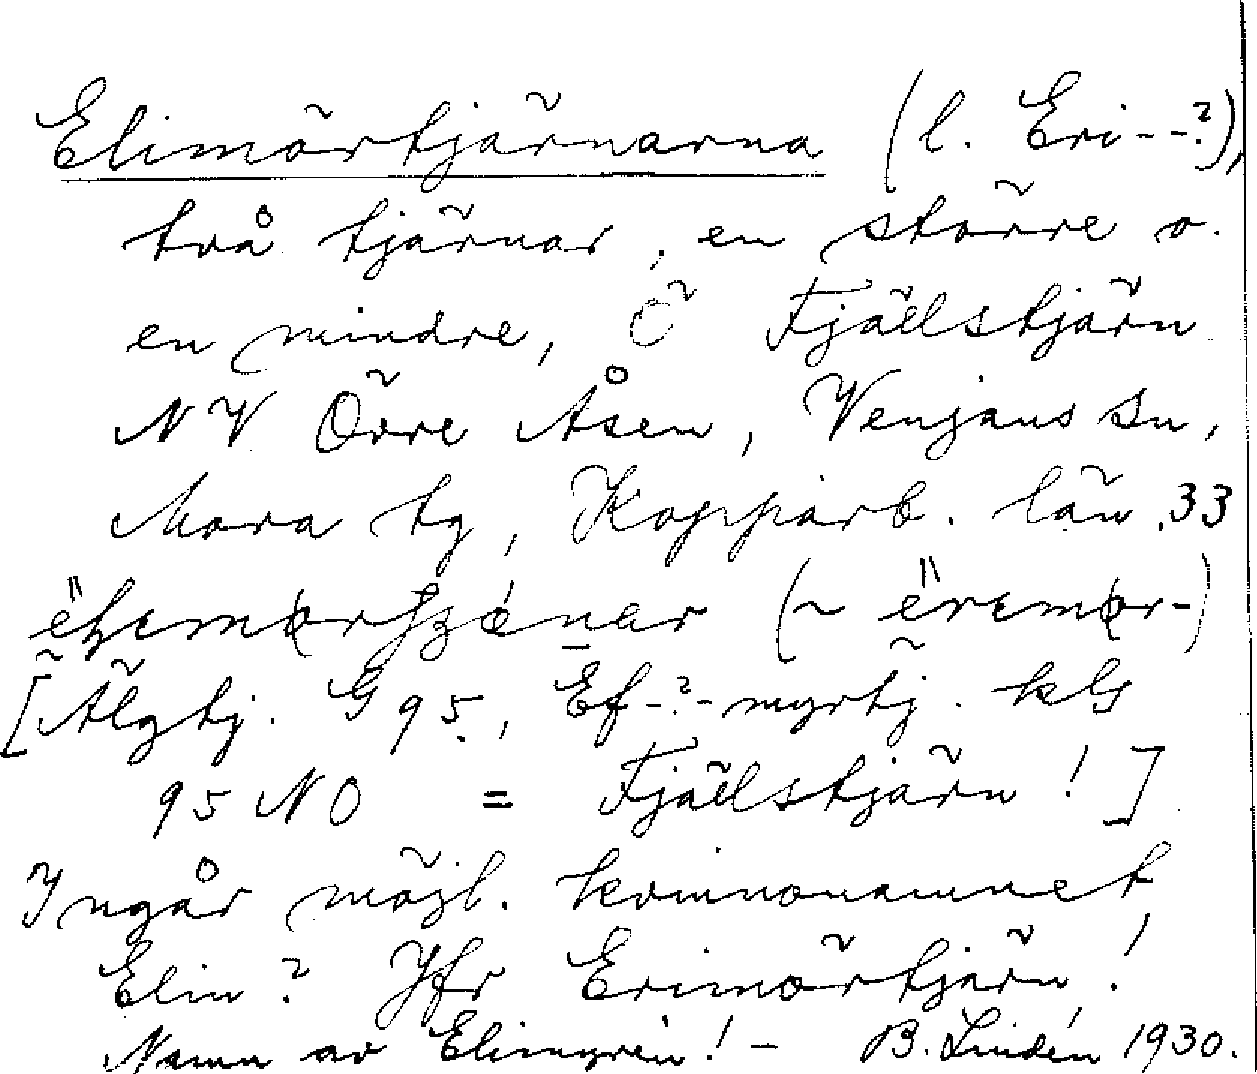 Elimörtjärnarna (l. Eri--?),
två tjärnar, en större o.
en mindre, Ö Fjällstjärn
NV Övre Åsen, Venjans sn,
Mora tg, Kopparb. län. 33
(~
[Älgtj. G 95, Ef-?-myrtj. kls
95 NO = Fjällstjärn! ]
Ingår möjl. kvinnonamnet
Elin? Jfr Erimörtjärn!
Namn av Elimyren! - B. Lindén 1930.